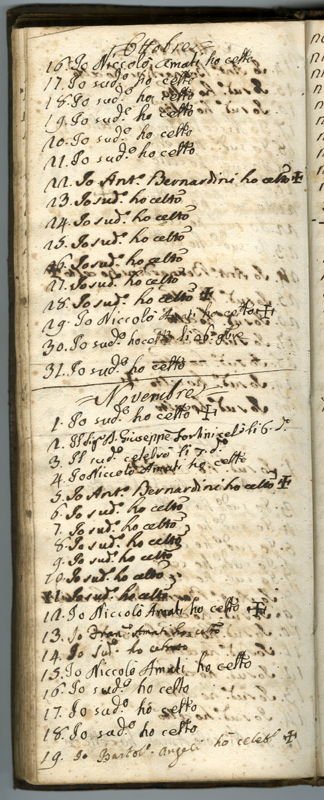 Ottobre
16. Io Niccolò Amati ho cellto
17. Io sud.º ho cellto
18. Io sud.º ho cellto
19. Io sud.º ho cellto
20. Io sud.º ho cellto
21. Io sud.º ho cellto
22. Io Ant.º Bernardini ho celto ✠
23. Io sud.º ho celto
24. Io sud.º ho celto
25. Io sud.º ho celto
26. Io sud.º ho celto
27. Io sud.º ho celto
28. Io sud.º ho celto ✠
29. Io Niccolò Amati ho cellto ✠
30. Io sud.º ho cellto li
31. Io sud.º ho cellto
Novembre
1. Io sud.º ho cellto ✠
2. Giuseppe Fortini li 6. d.º
3. Il sud.º celebrò li 7. d.º
4. Io Niccolò Amati ho cellto
5. Io Ant.º Bernardini ho celto ✠
6. Io sud.º ho celto
7. Io sud.º ho celto
8. Io sud.º ho celto
9. Io sud.º ho celto
10. Io sud.º ho celto
11. Io sud.º ho celto
12. Io Niccolò Amati ho cellto ✠
13. Io Fran.º Amati ho
14. Io sud.º ho
15. Io Niccolò Amati ho cellto
16. Io sud.º ho cellto
17. Io sud.º ho cellto
18. Io sud.º ho cellto
19. Io Bartol.º Angeli ho celeb.º ✠